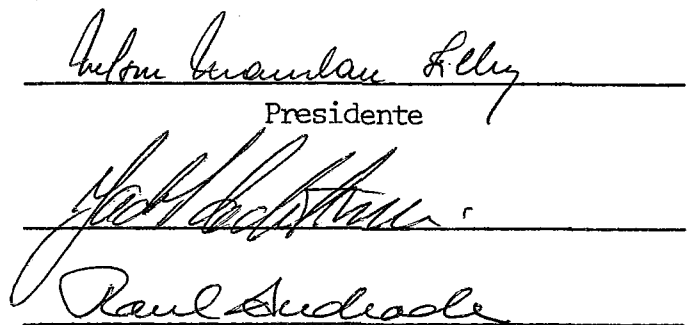 Nelson Maculan Filho
Presidente
Raul Andrade